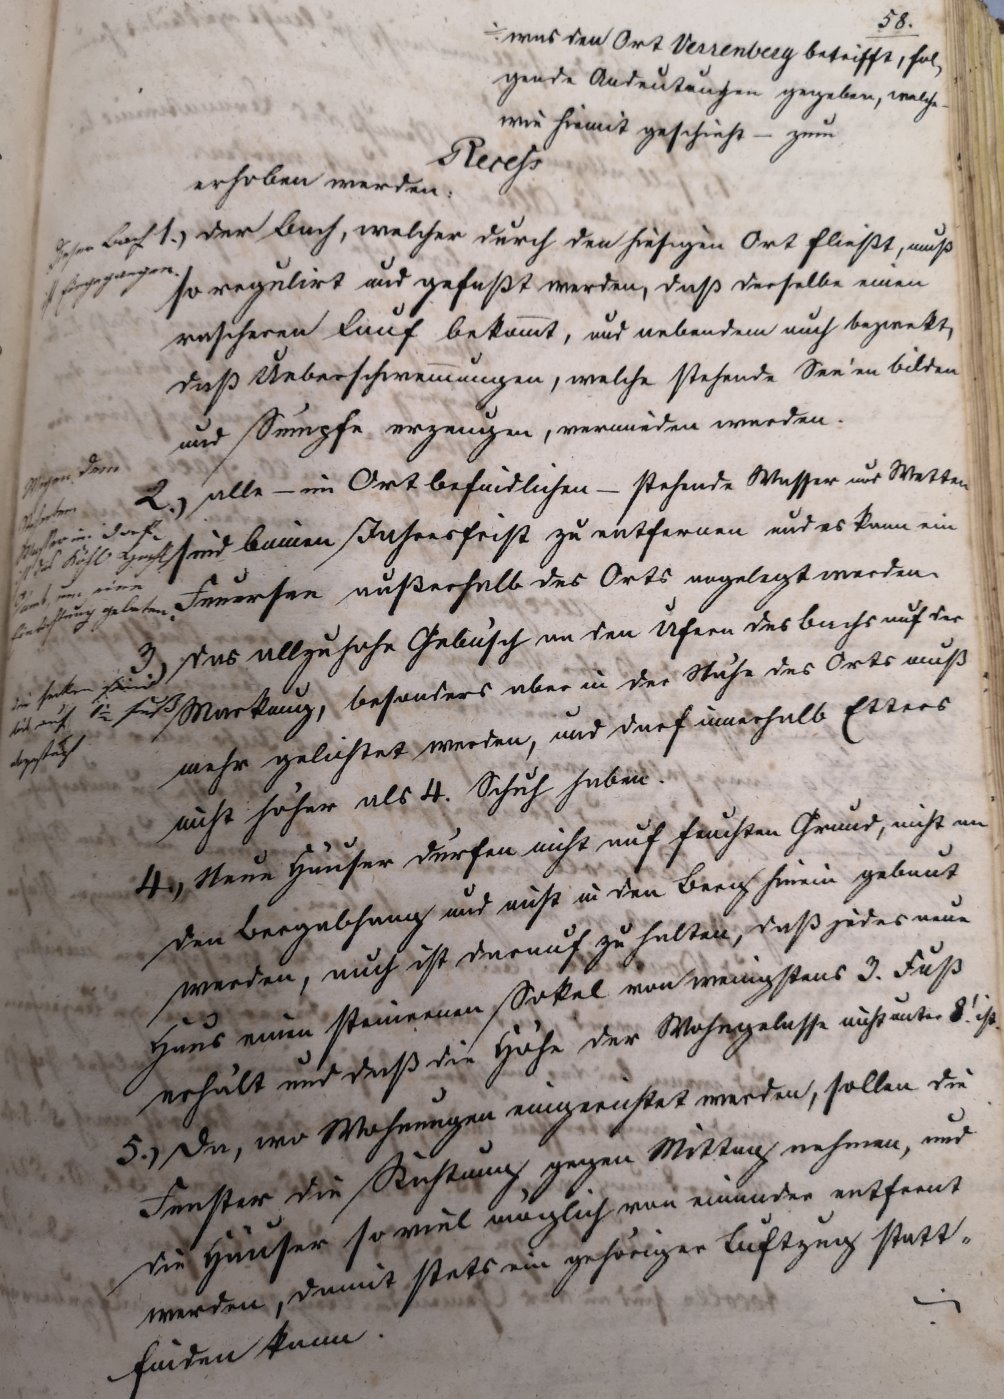 58.
was den Ort Verrenberg betrifft, fol,
gende Andeutungen gegeben, welche
wie hiemit geschieht – zum
Recess
erhoben werden:
1.) Der Bach, welcher durch den hiesigen Ort fließt, muß
so regulirt und gefaßt werden, daß derselbe einen
rascheren Lauf bekomt, und nebendem auch bezwekt,
daß Ueberschwemungen, welche stehende Seeen bilden
und Sümpfe erzeugen, vermieden werden.
2.) alle – im Ort befindlichen – stehende Wasser und Wetten
sind binnen Jahresfrist zu entfernen und es kann ein
Feuersee außerhalb des Orts angelegt werden.
3.) Das allzuhohe Gebüsch an den Ufern des Bachs auf der
Markung, besonders aber in der Nähe des Orts muß
mehr gelichtet werden, und darf innerhalb Etters
nicht höher als 4. Schuh haben.
4.) Neue Häuser dürfen nicht auf feuchten Grund, nicht an
den Bergabhang und nicht in den Berg hinein gebaut
werden, auch ist darauf zu halten, daß jedes neue
Haus einen steinernen Sokel von wenigstens 3. Fuß
erhält und daß die Höhe der Wohngelasse nicht unter 8.' ist.
5.) Da, wo Wohnungen eingerichtet werden, sollen die
Fenster die Richtung gegen Mittag nehmen, und
die Häuser so viel möglich von einander entfernt
werden, damit stets ein gehöriger Luftzug statt-
finden kann.
Bach
Wegen dem
Wasser
eine
Einrichtung gebeten.
Die Hecken sind
auf 1½ Fuß